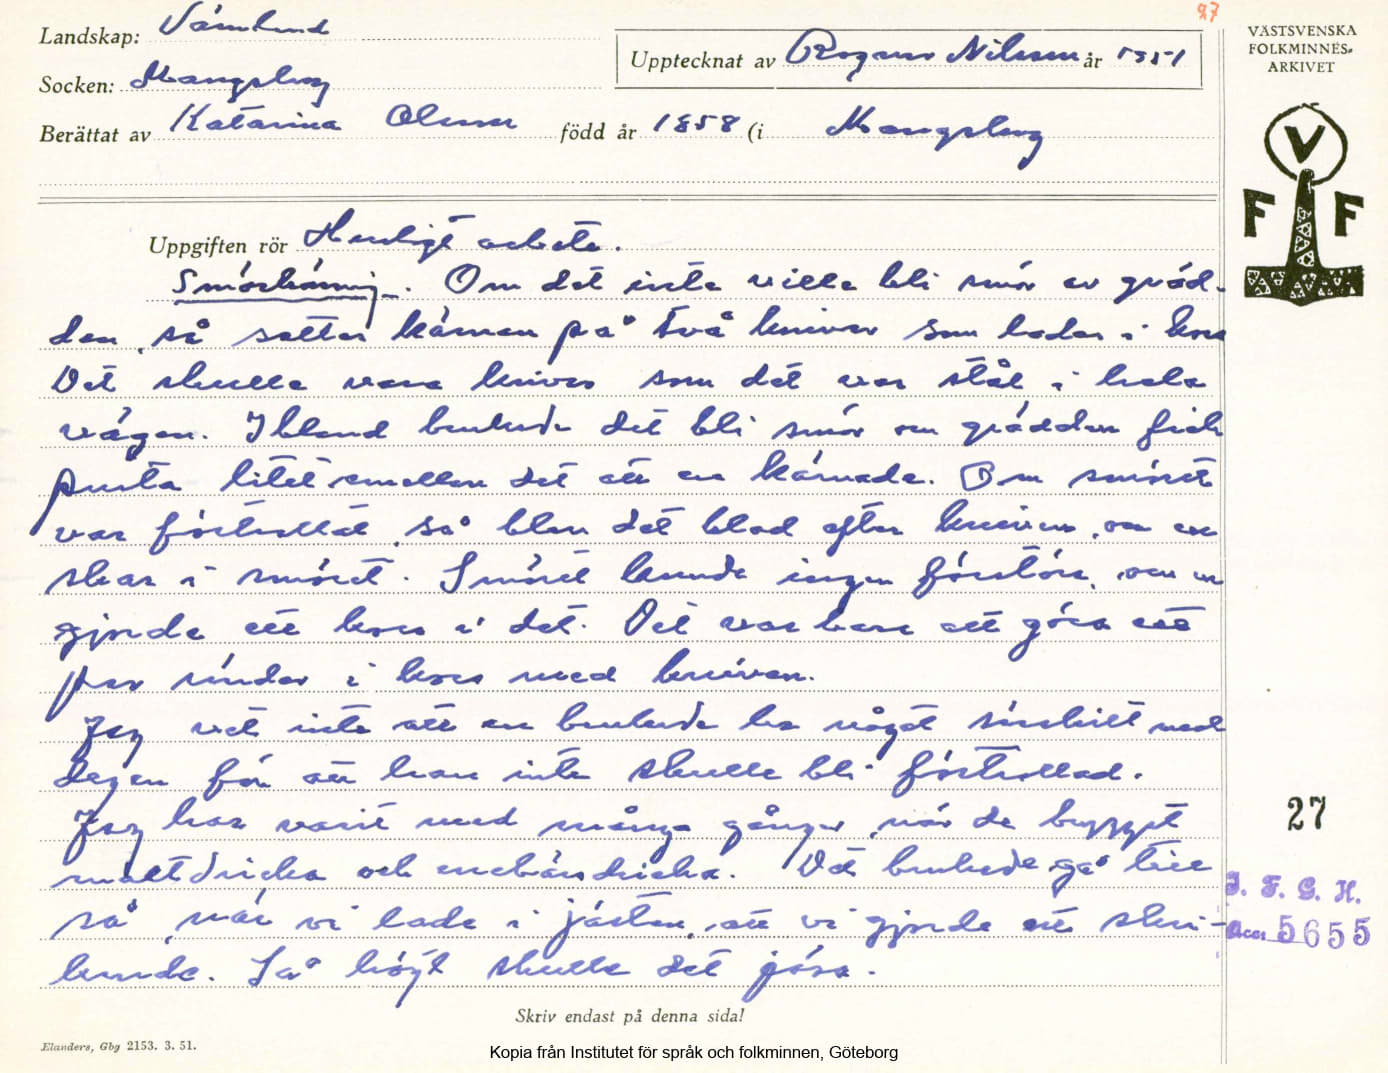 97
Landskap: Värmland
VÄSTSVENSKA
FOLKMINNES-
ARKIVET
Upptecknat av Ragnar Nilsson år 1951
Socken: Mangskog
Berättat av Katarina Olsson född år 1858 (i Mangskog
V
F F
Uppgiften rör Husligt arbete.
Smörkärning. Om det inte ville bli smör av gräd-
den, så sattes kärnan på två knivar som lades i kors
Det skulle vara knivar som det var stål i hela
vägen. Ibland brukade det bli smör om grädden fick
pusta litet emellan det att en kärnade. Om smöret
var förtrollat, så blev det blod efter kniven, om en
skar i smöret. Smöret kunde ingen förstöra, om en
gjorde ett kors i det. Det var bara att göra ett
par ränder i kors med kniven.
Jag vet inte att en brukade ha något särskilt med
degen för att han inte skulle bli förtrollad.
Jag har varit med många gånger, när de bryggt
maltdricka och enebärsdricka. Det brukade gå till
så, när vi lade i jästen, att vi gjorde ett skri-
kande. Så högt skulle det jäsa.
27
I. F. G. H.
Acc. 5655
Skriv endast på denna sida!
Elanders, Gbg 2153. 3. 51.
Kopia från Institutet för språk och folkminnen, Göteborg